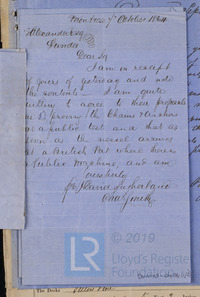 Montrose 7 October 1864
Alexander Esq
Dundee
Dear Sir
I am in receipt
of yours of yesterday and note
the contents. I am quite
willing to agree to their proposals
as to proving the Chains & Anchors
at a public test and that as
soon as the vessel arrives
at a British Port where there is
a public machine and am
David
© 2019
LR
Lloyd's Register
Foundation